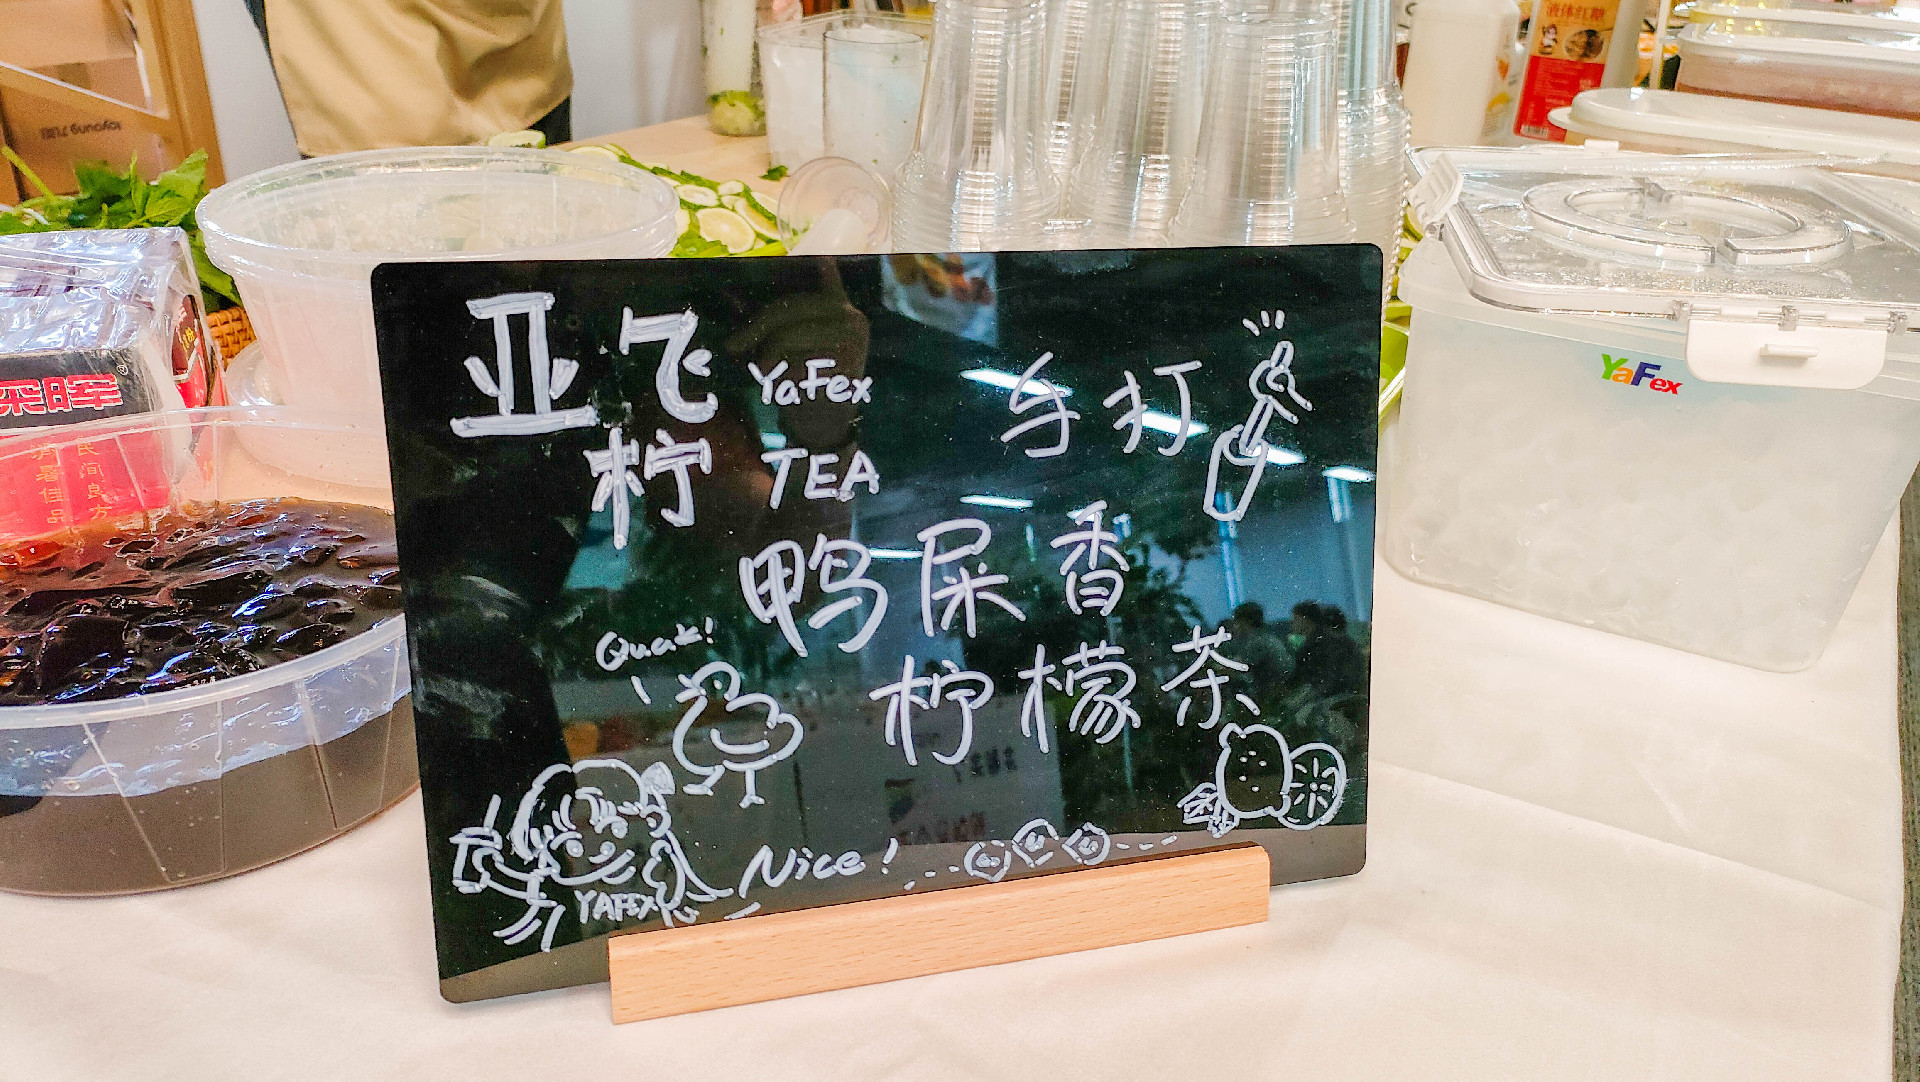 亚飞 YaFex
柠 TEA
手打
鸭屎香
柠檬茶
Quak!
Nice!
YAFEX
YaFex
液体红糖
消暑佳品
民间良方